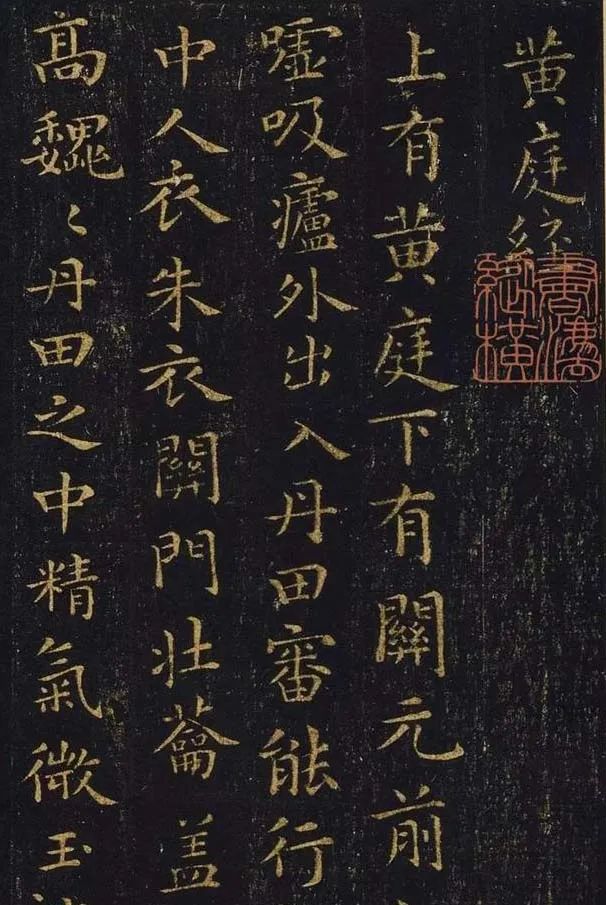 黄庭經
上有黄庭下有關元前
噓吸廬外出入丹田審能行
中人衣朱衣關門壯蘥盖
髙魏〻丹田之中精氣微玉